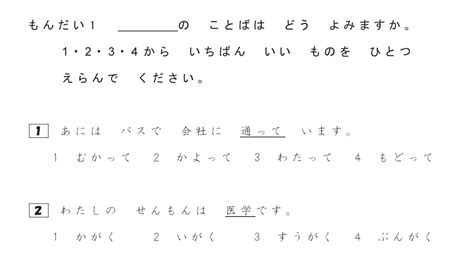 もんだい1 ＿＿＿＿＿の ことばは どう よみますか。
1・2・3・4から いちばん いい ものを ひとつ
えらんで ください。
1 あには バスで 会社に 通って います。
1 むかって 2 かよって 3 わたって 4 もどって
2 わたしの せんもんは 医学です。
1 かがく 2 いがく 3 すうがく 4 ぶんがく